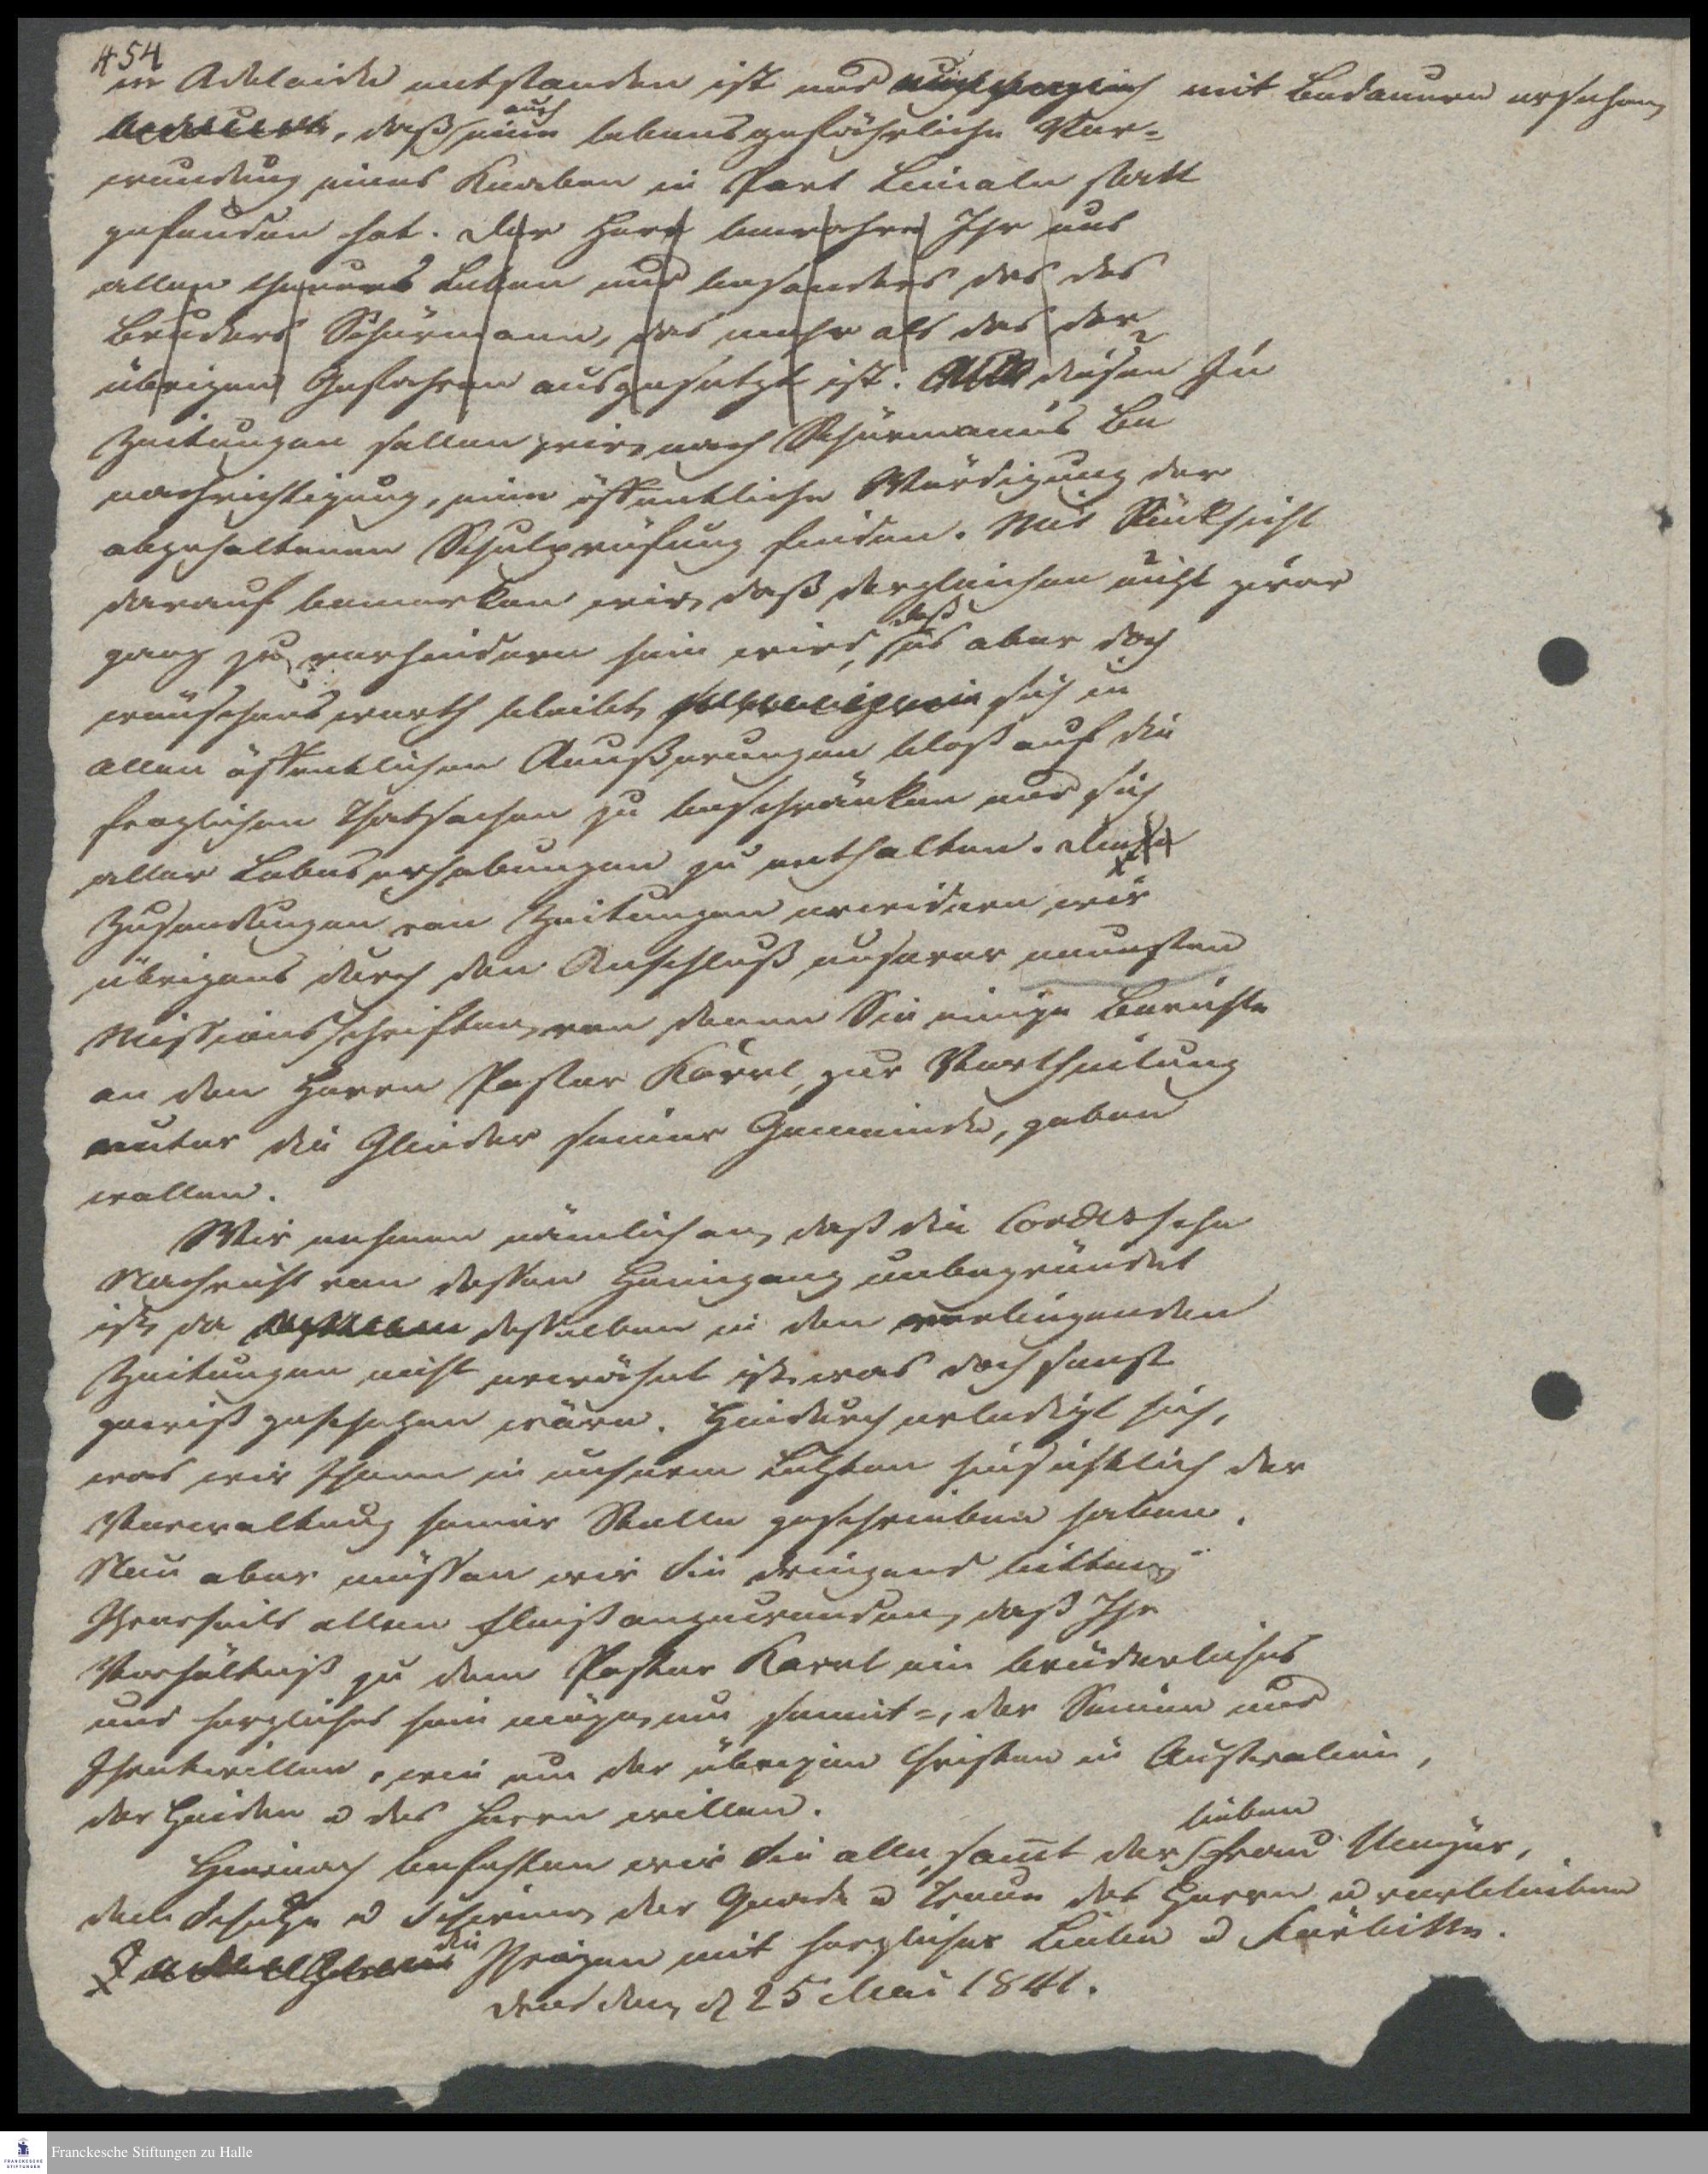 454
in Adelaide entstanden ist und mit Bedauern ersehen,
daß auch eine lebensgefährliche Ver-
wundung eines Knaben in Port Lincoln statt
gefunden hat. Der Herr bewahre Ihr uns
allen theures Leben und besonders das des
Bruders Schürmann, das mehr als das der
übrigen Gefahren ausgesetzt ist. diesen In
Zeitungen sollen wir, nach Schürmanns Be
nachrichtigung, eine öffentliche Würdigung der
abgehaltenen Schulprüfung finden. Mit Rücksicht
darauf bemerken wir, daß dergleichen nicht zwar
ganz zu verhindern sein wird, daß es aber doch
wünschenswerth bleibt, sich in
allen öffentlichen Aeußerungen bloß auf die
fraglichen Thatsachen zu beschränken und sich
aller Lobeserhebungen zu enthalten. Die
Zusendungen von Zeitungen erwidern wir
übrigens durch den Anschluß unserer neuesten
Missionsschriften, von denen Sie einige Berichte
an den Herrn Pastor Kavel, zur Vertheilung
unter die Glieder seiner Gemeinde, geben
wollen.
Wir nehmen nämlich an, daß die Cordessche
Nachricht von dessen Heimgang unbegründet
ist, da desselben in den vorliegenden
Zeitungen nicht erwähnt ist, was doch sonst
gewiß geschehen wäre. Hiedurch erledigt sich,
was wir Ihnen in unserem Letzten hinsichtlich der
Verwaltung seiner Stelle geschrieben haben.
Nun aber müssen wir Sie dringend bitten,
Ihrerseits allen Fleiß anzuwenden, daß Ihr
Verhältniß zu dem Pastor Kavel ein brüderliches
und herzliches sein möge, um somit, der Seinen und
Ihretwillen, wie um der übrigen Christen in Australien,
der Heiden u des Herrn willen.
Hiernach befehlen wir Sie alle, samt der lieben Frau Meyer,
dem Schutze u Schirme, der Gnade u Treue des Herrn u verbleiben
die Ihrigen mit herzlicher Liebe u Fürbitte.
Dresden, d 25 Mai 1841.
Franckesche Stiftungen zu Halle